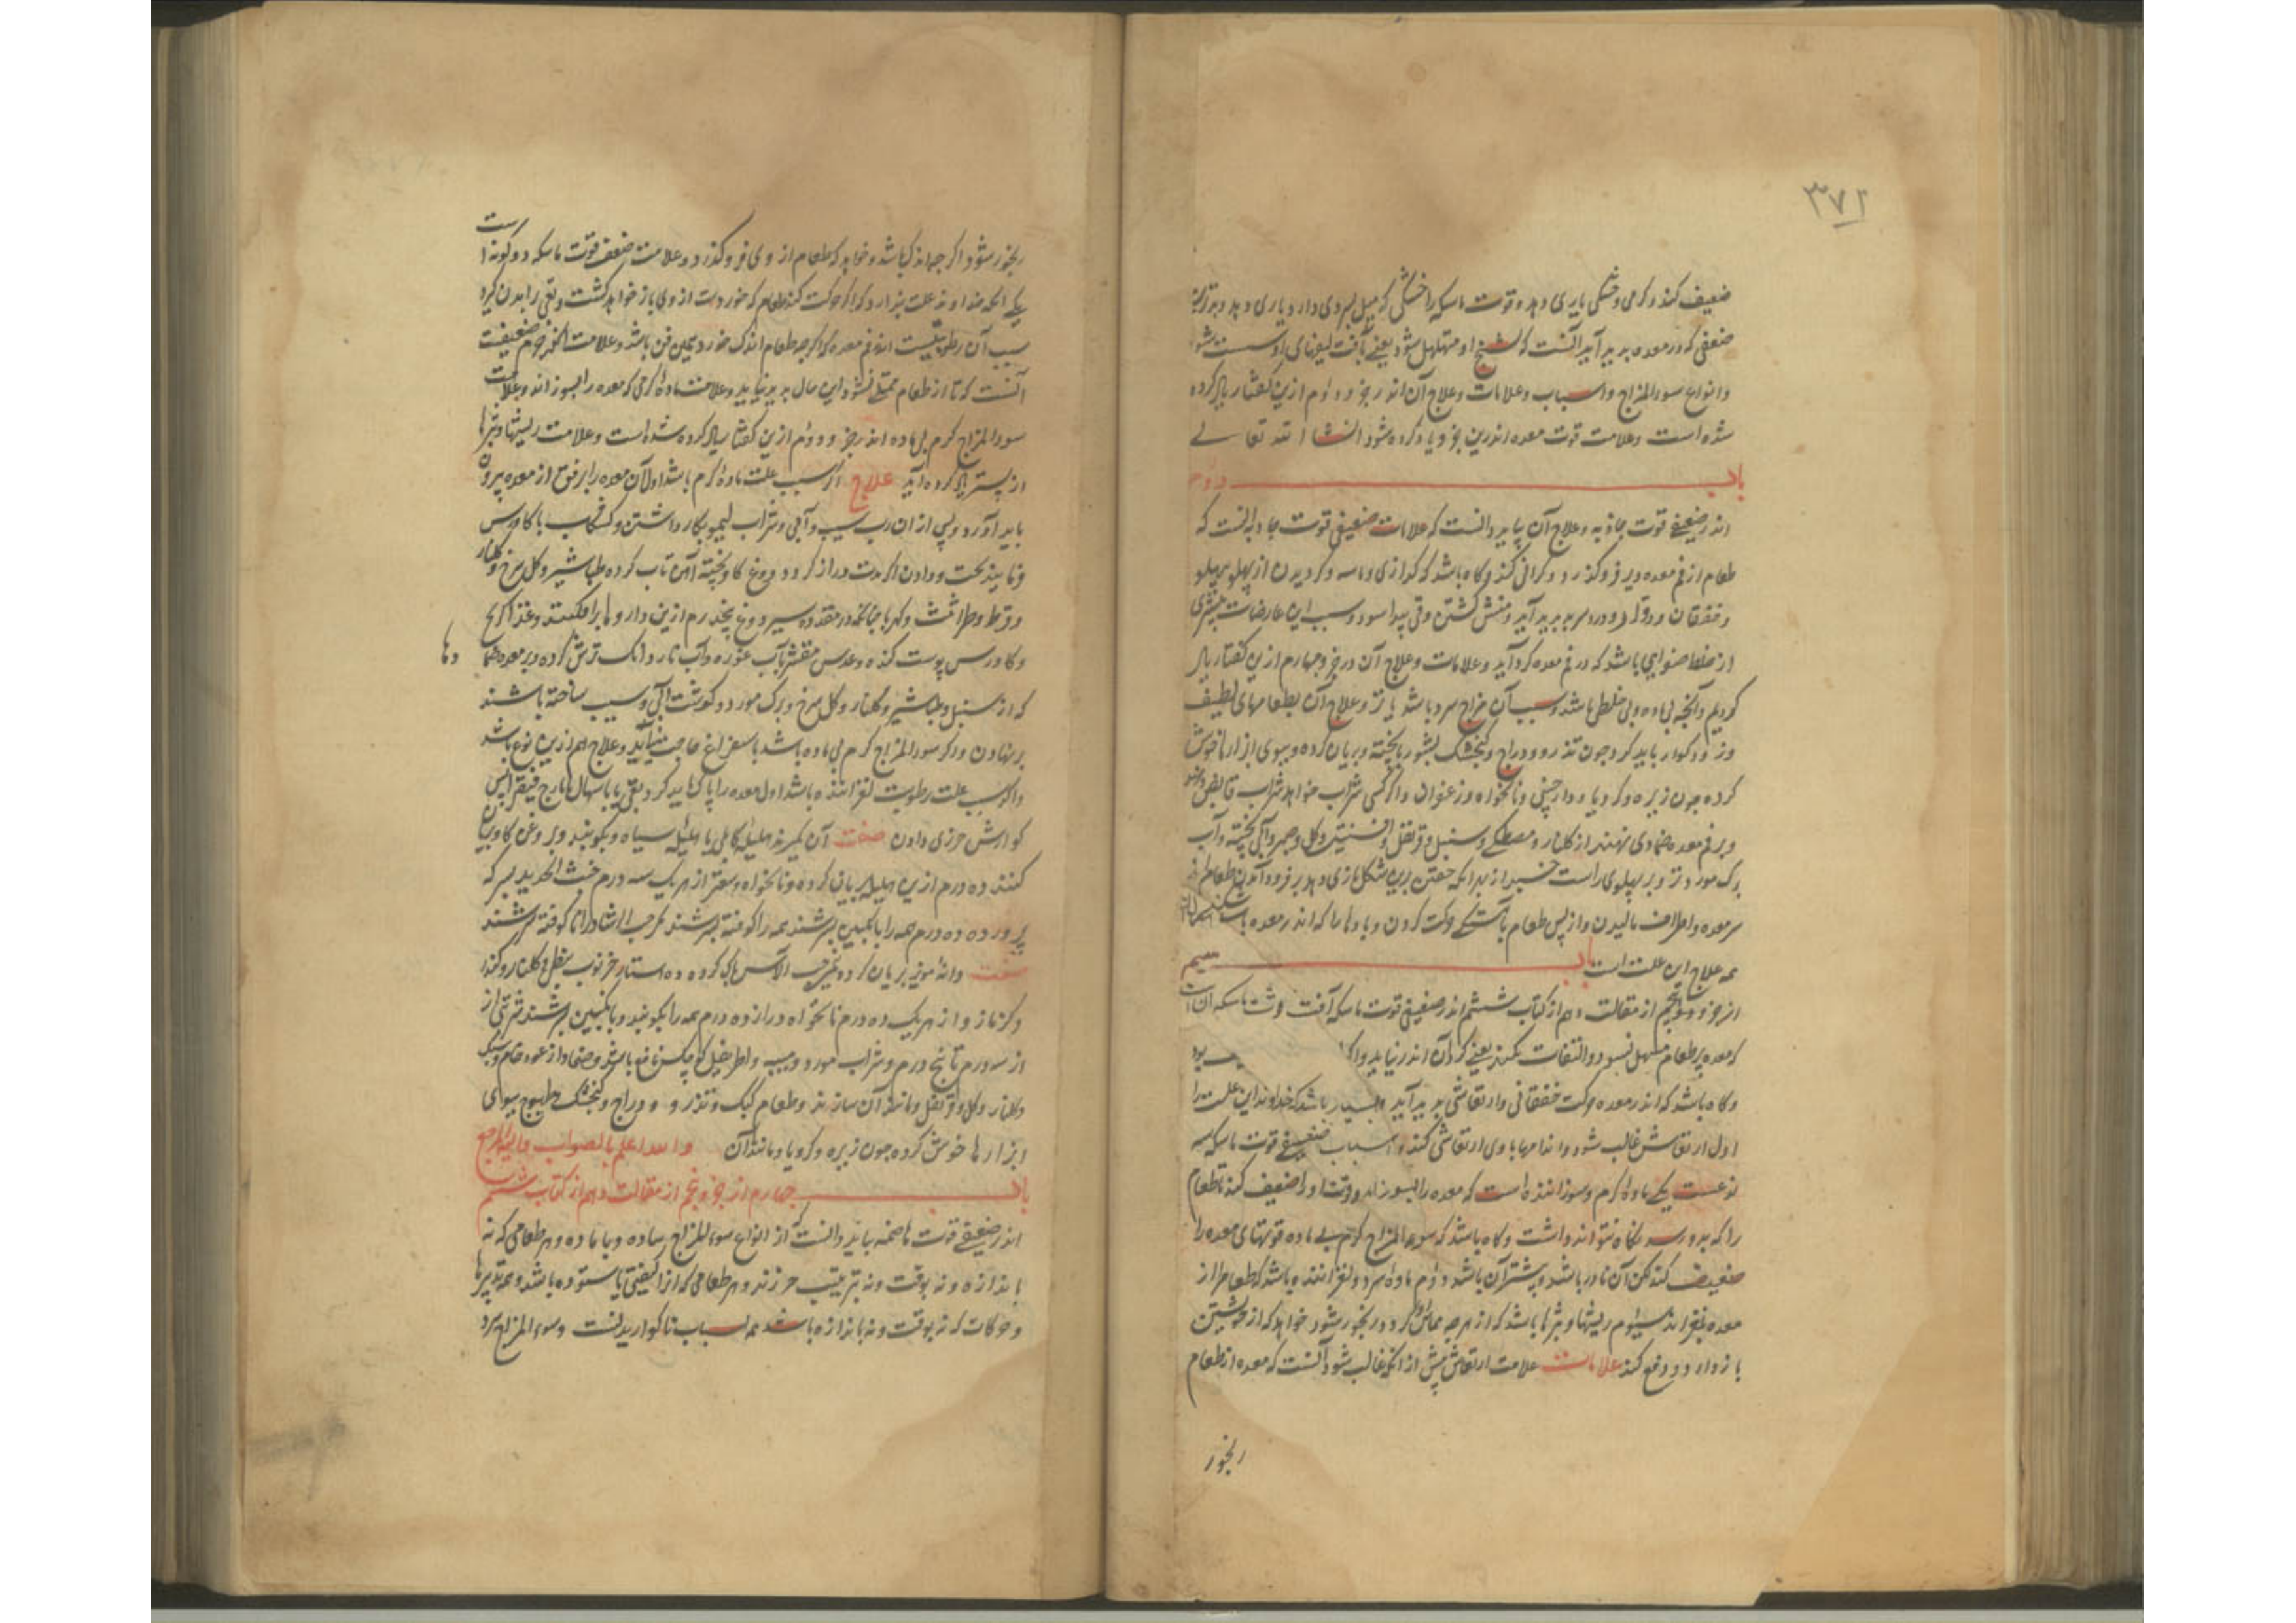 ۳۷۲
ضعیف کند و گرمی و خشکی یاری دهد و قوت ماسکه را خشکی که میل بسردی دارد یاری دهد و بدترین
ضعفی که در معده پدید آید آنست که لیف او متهلهل شود یعنی بافت لیفهای او سست شود
و انواع سوء المزاج و اسباب و علامات و علاج آن اندر جزو دوم ازین گفتار یاد کرده
شده است و علامت قوت معده اندرین جزو یاد کرده شود انشا الله تعالی
باب دوم
اندر ضعیفی قوت جاذبه و علاج آن بباید دانست که علامات ضعیفی قوت جاذبه آنست که
طعام از فم معده دیر فرو گذرد و گرانی کند و گاه باشد که و گردیدن از پهلو بپهلو
و خفقان و دوار و درد سر پدید آید و منش گشتن و قی پیدا شود و سبب این عارضات بیشتری
از خلط صفرایی باشد که در فم معده گرد آید و علامات و علاج آن در جزو چهارم ازین گفتار یاد
کردیم و آنچه بی ماده و بی خلطی باشد و سبب آن مزاج سرد باشد یا تر و علاج آن بطعامهای لطیف
و زود گوار باید کرد چون تذرو و دراج و گنجشک بشوربا پخته و بریان کرده و ببوی ابزارها خوش
کرده چون زیره و کرویا و دارچینی و نانخواه و زعفران و اگر کسی شراب خواهد شراب قابض دهند
و بر فم معده ضمادی نهند از گلنار و مصطکی و سنبل و قرنفل و افسنتین و گل و آبی پخته و آب
برگ مورد تر و بر پهلوی راست خسبد از بهر آنکه خفتن برین شکل یاری دهد بر فرود آمدن طعام از
سر معده و اطراف مالیدن و از پس طعام بآهستگی حرکت کردن و بادها را که اندر معده باشد
همه علاج این علت است باب سیم
از جزو پنجم از مقالت دهم از کتاب ششم اندر ضعیفی قوت ماسکه آفت قوت ماسکه آن است
که معده بر طعام مشتمل نشود و التفات نکند یعنی گرد آن اندر نیاید و اگر بود
و گاه باشد که اندر معده حرکت خفقانی و ارتعاشی پدید آید و بسیار باشد که خداوند این علت را
اول ارتعاش غالب شود و اندامها با وی ارتعاشی کند و اسباب ضعیفی قوت ماسکه سه
نوعست یکی ماده گرم و سوزاننده است که معده را بسوزاند و قوت او را ضعیف کند تا طعام
را که بدو رسد نگاه نتواند داشت و گاه باشد که سوء المزاج گرم بی ماده قوتهای معده را
ضعیف کند لکن آن نادر باشد و بیشتر آن باشد دوم ماده سرد و لغزاننده باشد که طعام را از
معده بلغزاند سیوم ریشها و بثرها باشد که از هر چه مماس او گردد رنجور شود خواهد که از خویشتن
باز دارد و دفع کند علامات علامت ارتعاش پیش از آنکه غالب شود آنست که معده از طعام
رنجور
رنجور شود اگر چه اندک باشد و خواهد که طعام از وی فرو گذرد و علامت ضعف قوت ماسکه دو گونه است
یکی آنکه خداوند علت پندارد که اگر حرکت کند طعام که خورده است از وی باز خواهد گشت و قی را بدان گیرد
سبب آن رطوبتیست اندر فم معده که اگر چه طعام اندک خورد همین ظن باشد و علامت آنکه ضعیفست
آنست که تا از طعام ممتلی نشود این حال پدید نیاید و علامت ماده گرمی که معده را بسوزاند و علامت
سوء المزاج گرم بی ماده اندر جزو دوم ازین گفتار یاد کرده شده است و علامت ریشها و بثرها
از پستر یاد کرده آید علاج اگر سبب علت ماده گرم باشد اول آن معده را برفق از معده بیرون
باید آورد و پس از آن رب سیب و آبی و شراب لیمو بکار داشتن و کشکاب با کاورس
و دادن اگر مدت دراز گردد دوغ گاو پخته آهن تاب کرده طباشیر و گل سرخ و گلنار
و قرط و طراثیث و کهربا چنانکه در مقدار ده سیر دوغ پنج درم ازین داروها برافکنند و غذا
و کاورس پوست کنده و عدس مقشر بآب غوره و آب نار دانک ترش کرده و بر معده ضمادها
که از سنبل و طباشیر و گلنار و گل سرخ و برگ مورد و گوشت آبی و سیب ساخته باشند
برنهادن و اگر سوء المزاج گرم بی ماده باشد باستفراغ حاجت نیاید و علاج هم ازین نوع باشد
و اگر سبب علت رطوبت لغزاننده باشد اول معده را پاک باید کرد بقی یا باسهال بایارج فیقرا پس
گوارش خوزی دادن صفت آن بگیرند هلیله کابلی یا هلیله سیاه و بکوبند و بروغن گاو بریان
کنند ده درم ازین هلیله بریان کرده و نانخواه و صعتر از هر یک سه درم خبث الحدید بسرکه
پرورده ده درم همه را بانگبین بسرشند همه را کوفته بسرشند حب الرشاد را نا کوفته بسرشند
صفت دانه مویز بریان کرده حب الآس پاک کرده ده استار خرنوب نبطی و گلنار و کندر
و گزمازو از هر یک ده درم نانخواه دوازده درم همه را بکوبند و بانگبین بسرشند شربتی از
از سه درم تا پنج درم و شراب مورد و میبه و اطریفل کوچک نافع باشد و ضماد از عود خام و سک
و گلنار و گل و قرنفل و مانند آن سازند و طعام کبک و تذرو و دراج و گنجشک و طیهوج ببوی
ابزارها خوش کرده چون زیره و کرویا و مانند آن والله اعلم بالصواب والیه المرجع
باب چهارم از جزو پنجم از مقالت دهم از کتاب ششم
اندر ضعیفی قوت هاضمه بباید دانست که از انواع سوء المزاج ساده و با ماده و هر طعامی که نه
باندازه و نه بوقت و نه بترتیب خورند و هر طعامی که از کیفیتی ناستوده باشد و همه تدبیرها
و حرکات که نه بوقت و نه باندازه باشد همه اسباب ناگواریدنست و سوء المزاج سرد